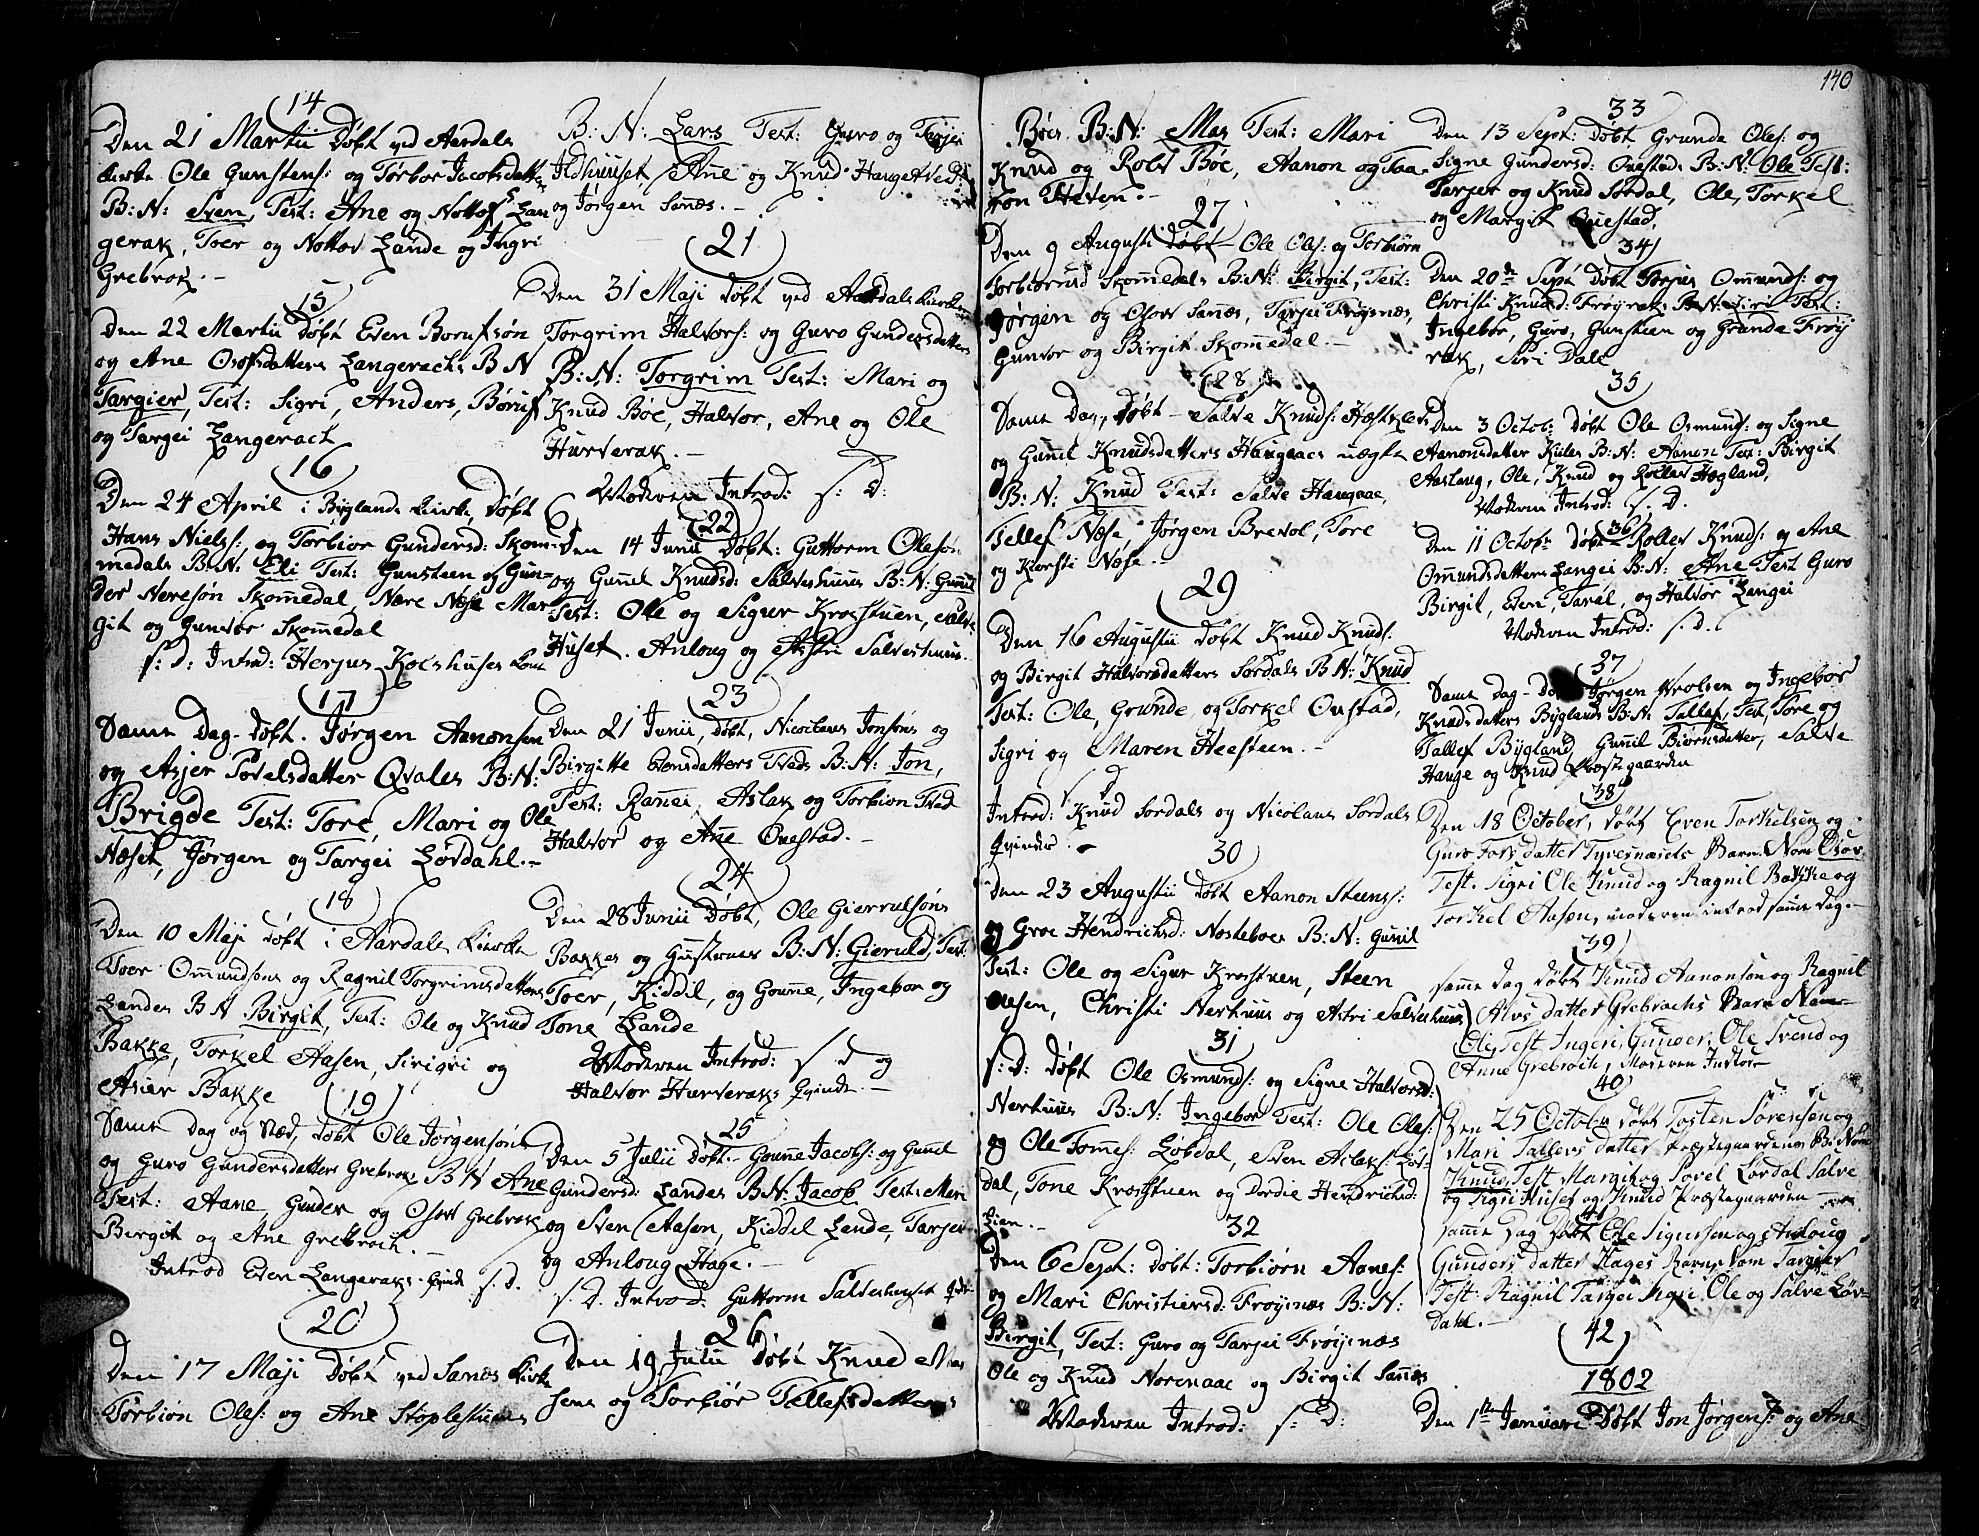 14
Den 21 Martii Døbt ved Aardals
Kirke Ole Gunstens: og Torbor Jacobsdatter
B: N: Sven, Test: Ane og Nottof Lan
gerak, Toer og Nottov Lande og Ingri
Grebrok.-
15
Den 22 Martii Døbt Even Borufsøn
og Ane Osofsdatters Langerachs B N
Targier, Test: Sigri, Anders, Børuf
og Targei Langerach
16
Den 24 April i Byglands Kirke, Døbt
Hans Niels: og Torbior Gundersd: Skom-
medals B: N: Eli Test: Gunsteen og Gun-
der Neresøn Skomedal, Nære Næse Mar
git og Gunvor Skomedal
s: d: Introd: Herjus Koeshuses Kone
17
Samme Dag- Døbt. Jørgen Aanonsen
og Asjer Povelsdatter Qvales B: N:
Brigde Test: Tore, Mari og Ole
Næset, Jørgen og Targei Lørdahl.-
18
Den 10 Maji Døbt i Aardals Kircke
Toer Omundsøns og Ragnil Torgrimsdatters
Landes B N Birgit, Test: Ole og Knud
Bakke, Torkel Aasen, Sirigri og
Asier Bakke
19
Samme dag og Stæd, døbt Ole Jørgensøns
og Guro Gundersdatters Grebrok B N Ane
Test: Aane, Gunder og Osov Grebrok
Birgit og Ane Grebroch.-
Introd Even Langeraks Qvinde s. d.
20
Den 17 Maji Døbt ved Sanæs Kirke
Torbiøn Oles: og Ane Stoplestuens
B: N: Lars Test: Guro og Tarjei
Ildhuuset, Ane og Knud Hangetvedt
og Jørgen Sanæs.-
21
Den 31 Maji Døbt ved Aardals Kirke
Torgrim Halvors: og Guro Gundersdatters
B: N: Torgrim Test: Mari og
Knud Bøe, Halvor, Ane og Ole
Hurverak.-
Moderen Introd: s: d:
22
Den 14 Junii Døbt: Guttorm Olesøn
og Gunel Knudsd: Salveshuus B: N: Gunil
Test: Ole og Sigur Krosstuen, Salve
Huset. Anloug og Astri Salveshuus.
23
Den 21 Junii, Døbt, Nicolaus Jonsøns og
Birgitte Evensdatters Tveds B: N: Jon,
Test: Ranei, Aslak og Torbion Tved
Halvor og Ane Ovestad.-
24
Den 28 Junii Døbt, Ole Gierrulsøns
Bakkes og B: N: Gieruld, Test:
Toer, Kiddil, og Goune, Ingebor og
Tone Lande
Moderen Introd: s. d og
Halvor Hurveraks Qvinde.-
25
Den 5 Julii Døbt.- Goune Jacobs: og Gunel
Gundersd: Landes B: N: Jacob Test: Mari
og Sven Aasen, Kiddil Lande, Tarjei
og Anloug Hage.-
s. d. Introd. Guttorm Salveshuset Qvin
26
Den 19 Julii Døbt Knud Mas
sens og Torbiør Tellefsdatters
140
Bøes B: N: Mas Test: Mari
Knud og Rolv Bøe, Aanon og Taa-
ron Heven.-
27
Den 9 Augusti døbt Ole Ols: og Torbiørn
Torbiørnsd Skomedals B: N: Birgit, Test:
Jørgen og Osov Sanæs, Tarjei Frøysnæs,
Gunvor og Birgit Skomedal.-
28
Samme Dag, Døbt - Salve Knuds:
og Gunil Knudsdatters Haugaaes uægte
B: N: Knud Test: Salve Haugaae,
Tellef Næse, Jørgen Brevol, Tore
og Kiersti Næse.-
29
Den 16 Augustii Døbt Knud Knuds:
og Birgit Halvorsdatters Sordals B N: Knud
Test: Ole, Grunde, og Torkel Ovstad,
Sigri og Maren Heesteen.-
s d
Introd: Knud Sordals og Nicolaus Sordals
Qvinder.-
30
Den 23 Augustii Døbt Aanon Steens:
og Groe Hendrichsd: Nosteboes B: N: Gunil
Test: Ole og Sigur Krosstuen, Steen
Olesen, Christi Nerhuus og Astri Salveshuus
31
s: d: Døbt Ole Osmunds: og Signe Halvorsd:
Nerhuus B: N: Ingebor Test: Ole Oles:
og Ole Tomes: Løbdal, Sven Aslaks: Løv-
dal, Tone Krosstuen og Dordie Hendrichsd:
Lien.-
32
Den 6 Sept: Døbt: Torbiørn Aanes:
og Mari Christiersd: Frøysnæs B: N:
Birgit, Test: Guro og Tarjei Frøysnæs
Ole og Knud Norenaae og Birgit Sanæs
Moderen Introd: s: d:
33
Den 13 Sept: Døbt Grunde Oles: og
Signe Gundersd: Ovestads B: N: Ole Test:
Tarjer og Knud Sordal, Ole, Torkel
og Margit Ovestad.
34
Den 20de Sept Døbt Torjus Omunds: og
Christi Knudsd: Frøyraks B: N: Siri Test:
Ingebor, Guro, Gunsteen og Grunde Frøy
rak, Siri Dale
35
Den 3 Octob: Døbt Ole Osmunds: og Signe
Aanonsdatter Kiles B: N: Aanon Test: Birgit
Aaslaug, Ole, Knud og Rollev Høgland,
Moderen Introd: s. d.
36
Den 11 Octobr Døbt Rollev Knuds: og Ane
Omundsdatters Langei B: N: Ane Test Guro
Birgit, Even, Tarel, og Halvor Langei
Moderen Introd: s. d.
37
Samme dag - Jørgen Arolsen og Ingebor
Knudsdatters Byglands B: N: Tallef, Test, Tore og
Tallef Bygland, Gunil Biørnsdatter, Salve
Hauge og Knud Præstegaarden
38
Den 18 October, døbt Even Torkelsen og
Guro Torsdatter Tyvesnæsets Barn. Nom Osov
Test. Sigri Ole Knud og Ragnil Bakke og
Torkel Aasen, moderen introd samme dag.-
39
samme dag døbt Knud Aanonsøn og Ragnil
Alvs datter Grebrochs Barn Nam-
Ole, Test Ingeri, Gunvor, Ole Svend og
Anne Grebroch, Moderen Indtor-
40
Den 25 October døbt Tosten Sørensøn og
Mari Tallevs datter Præstegaardens B: Nom
Knud, Test Margit og Povel Lørdal Salve
og Sigri Huset og Knud Præstegaarden
41
samme Dag døbt Ole Sigursen og Anloug
Gunders datter Hages Barns Nom Targier
Test: Ragnil Targei Mari Ole og Salve Lør-
dahl.-
42
1802
Den 1te Januarii Døbt Jon Jørgens: og Ane